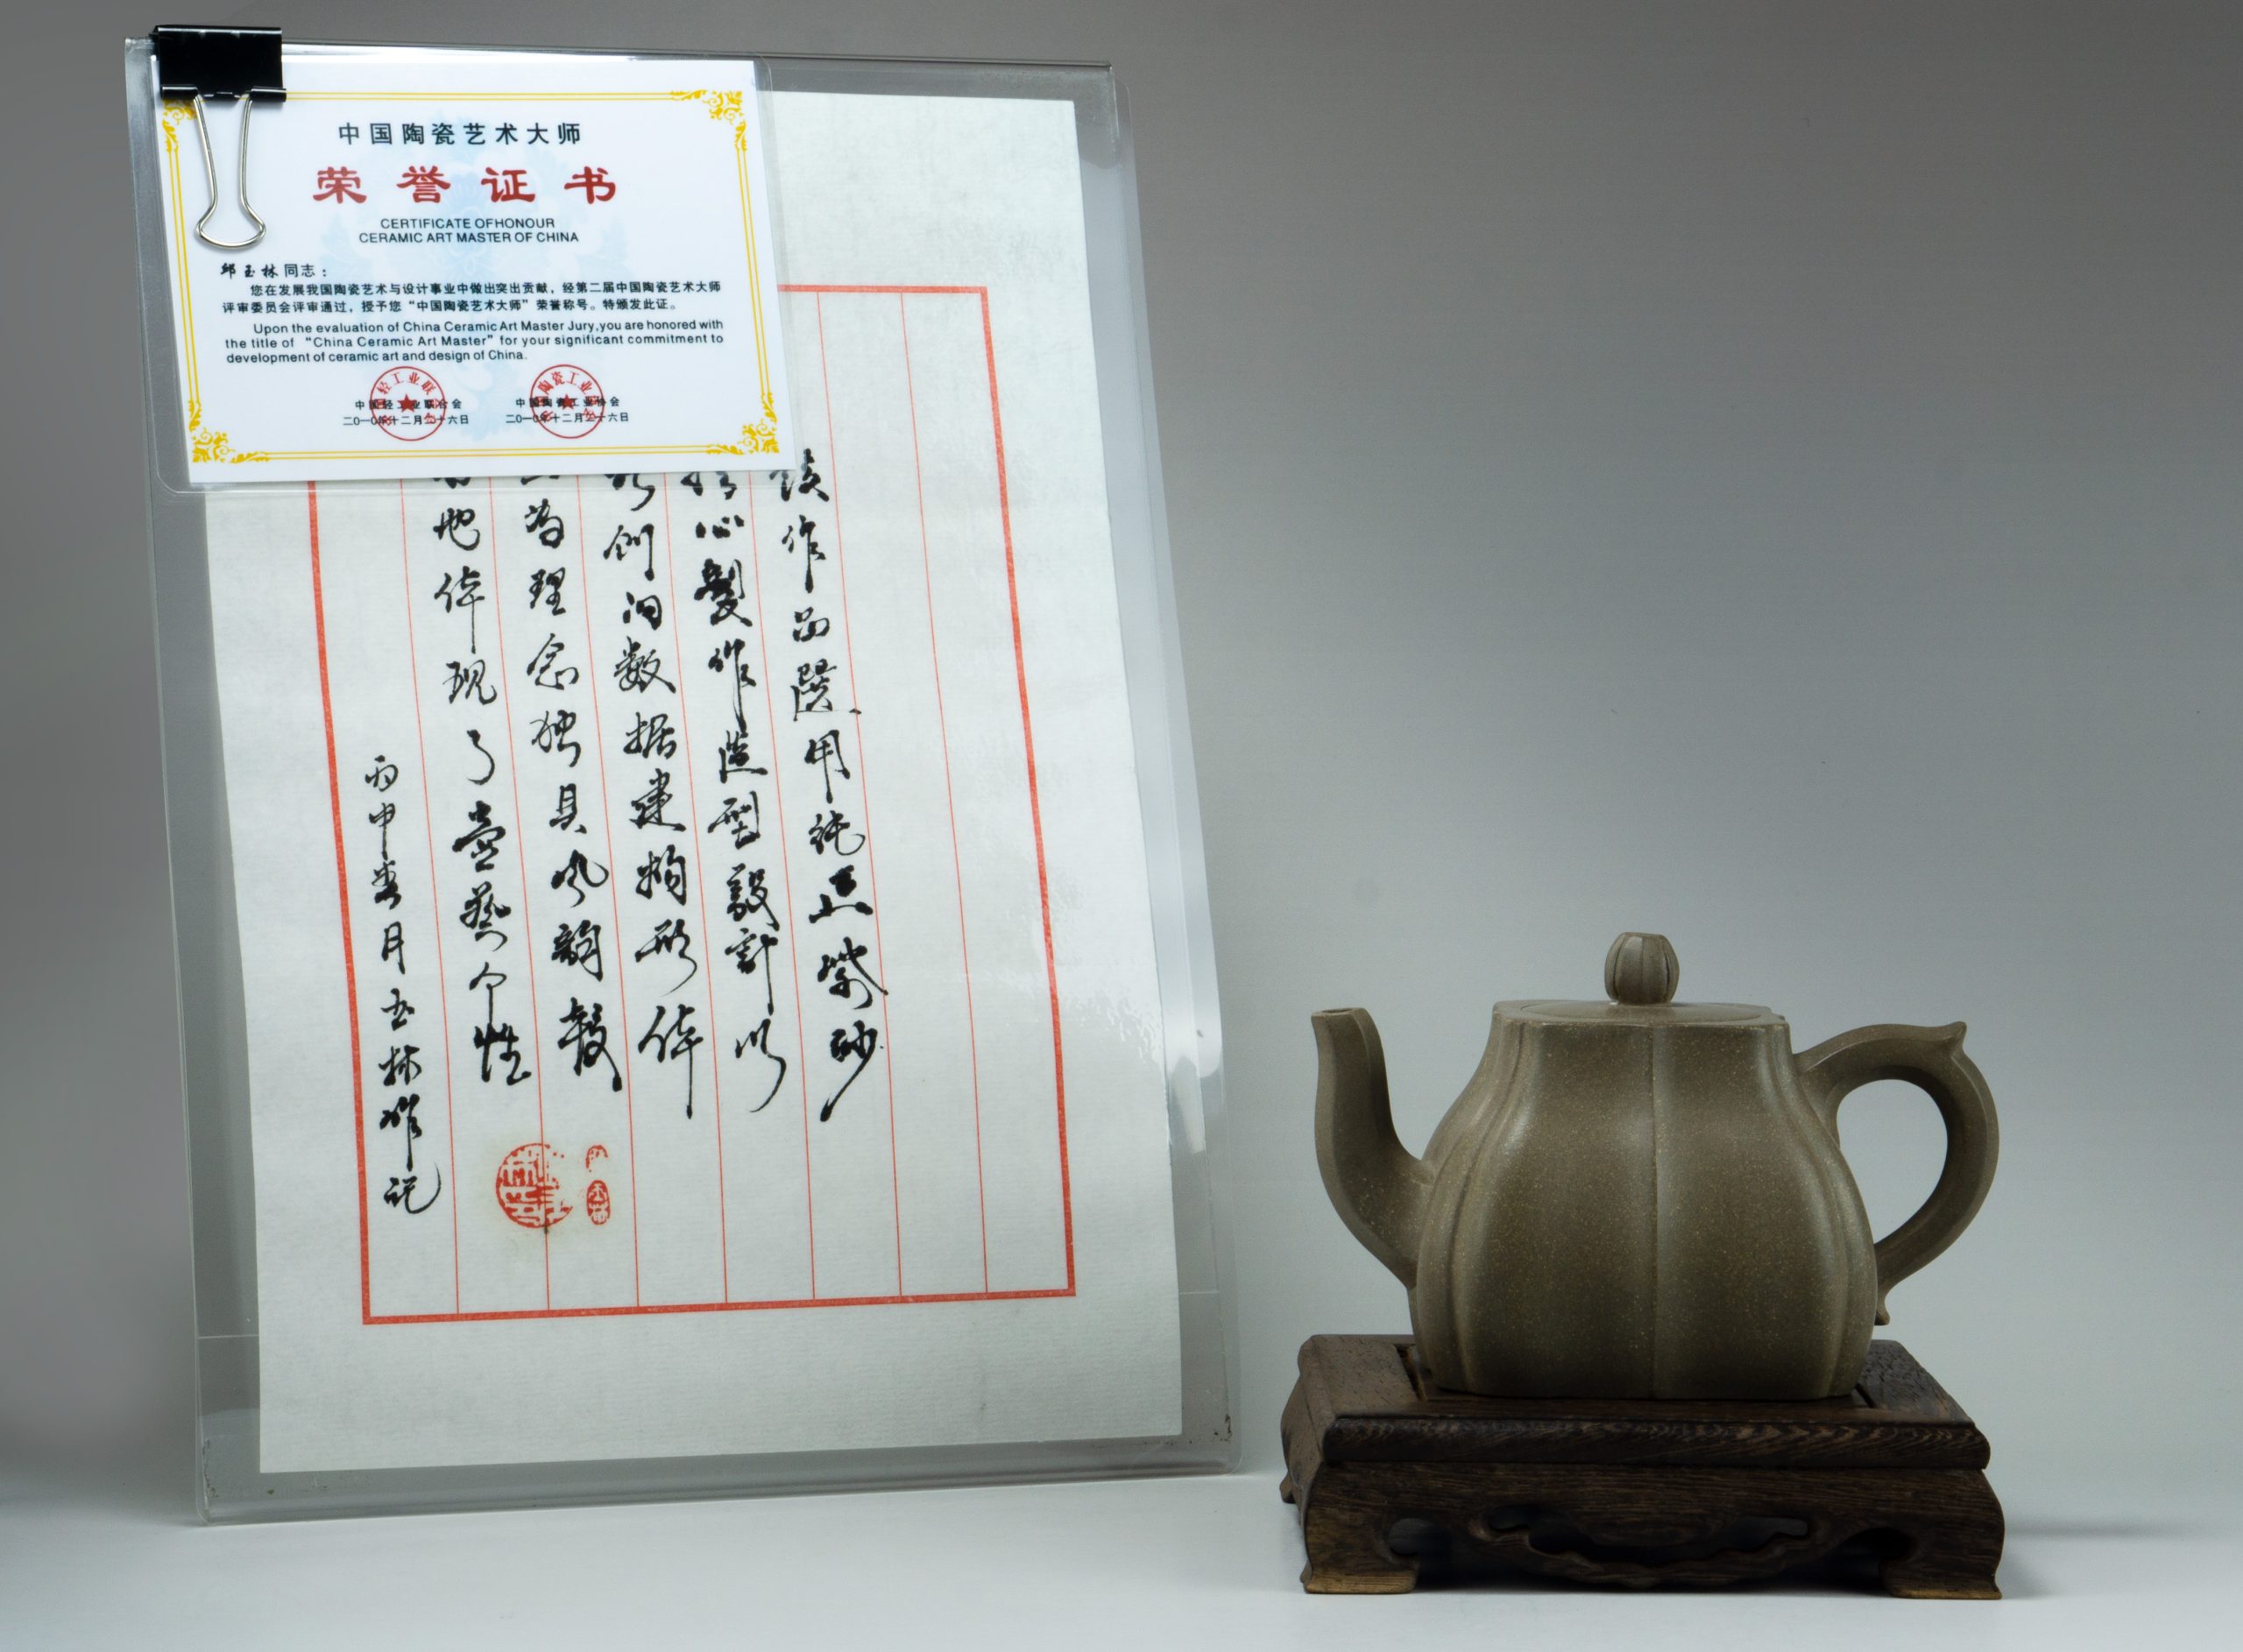 中国陶瓷艺术大师
荣誉证书
CERTIFICATE OFHONOUR
CERAMIC ART MASTER OF CHINA
邱玉林同志：
您在发展我国陶瓷艺术与设计事业中做出突出贡献，经第二届中国陶瓷艺术大师
评审委员会评审通过，授予您“中国陶瓷艺术大师”荣誉称号。特颁发此证。
Upon the evaluation of China Ceramic Art Master Jury,you are honored with
the title of “China Ceramic Art Master” for your significant commitment to
development of ceramic art and design of China.
中国轻工业联合会 中国陶瓷工业协会
二〇一〇年十二月二十六日 二〇一〇年十二月二十六日
该作品選用純正紫砂
精心製作造型設計以
创汩数据建构形体
为理念独具风韵較
地体现了壶藝个性
丙申春月玉林作記